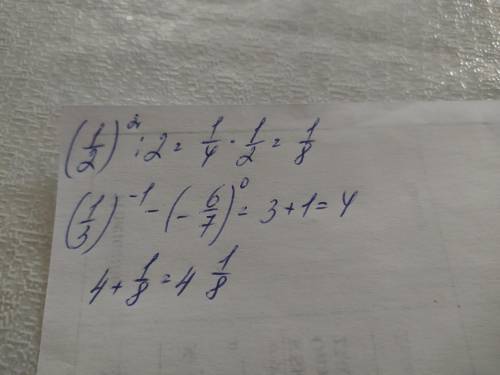 (1/2)² : 2 = 1/4 · 1/2 = 1/8
(1/3)⁻¹ - (- 6/7)⁰ = 3 + 1 = 4
4 + 1/8 = 4 1/8